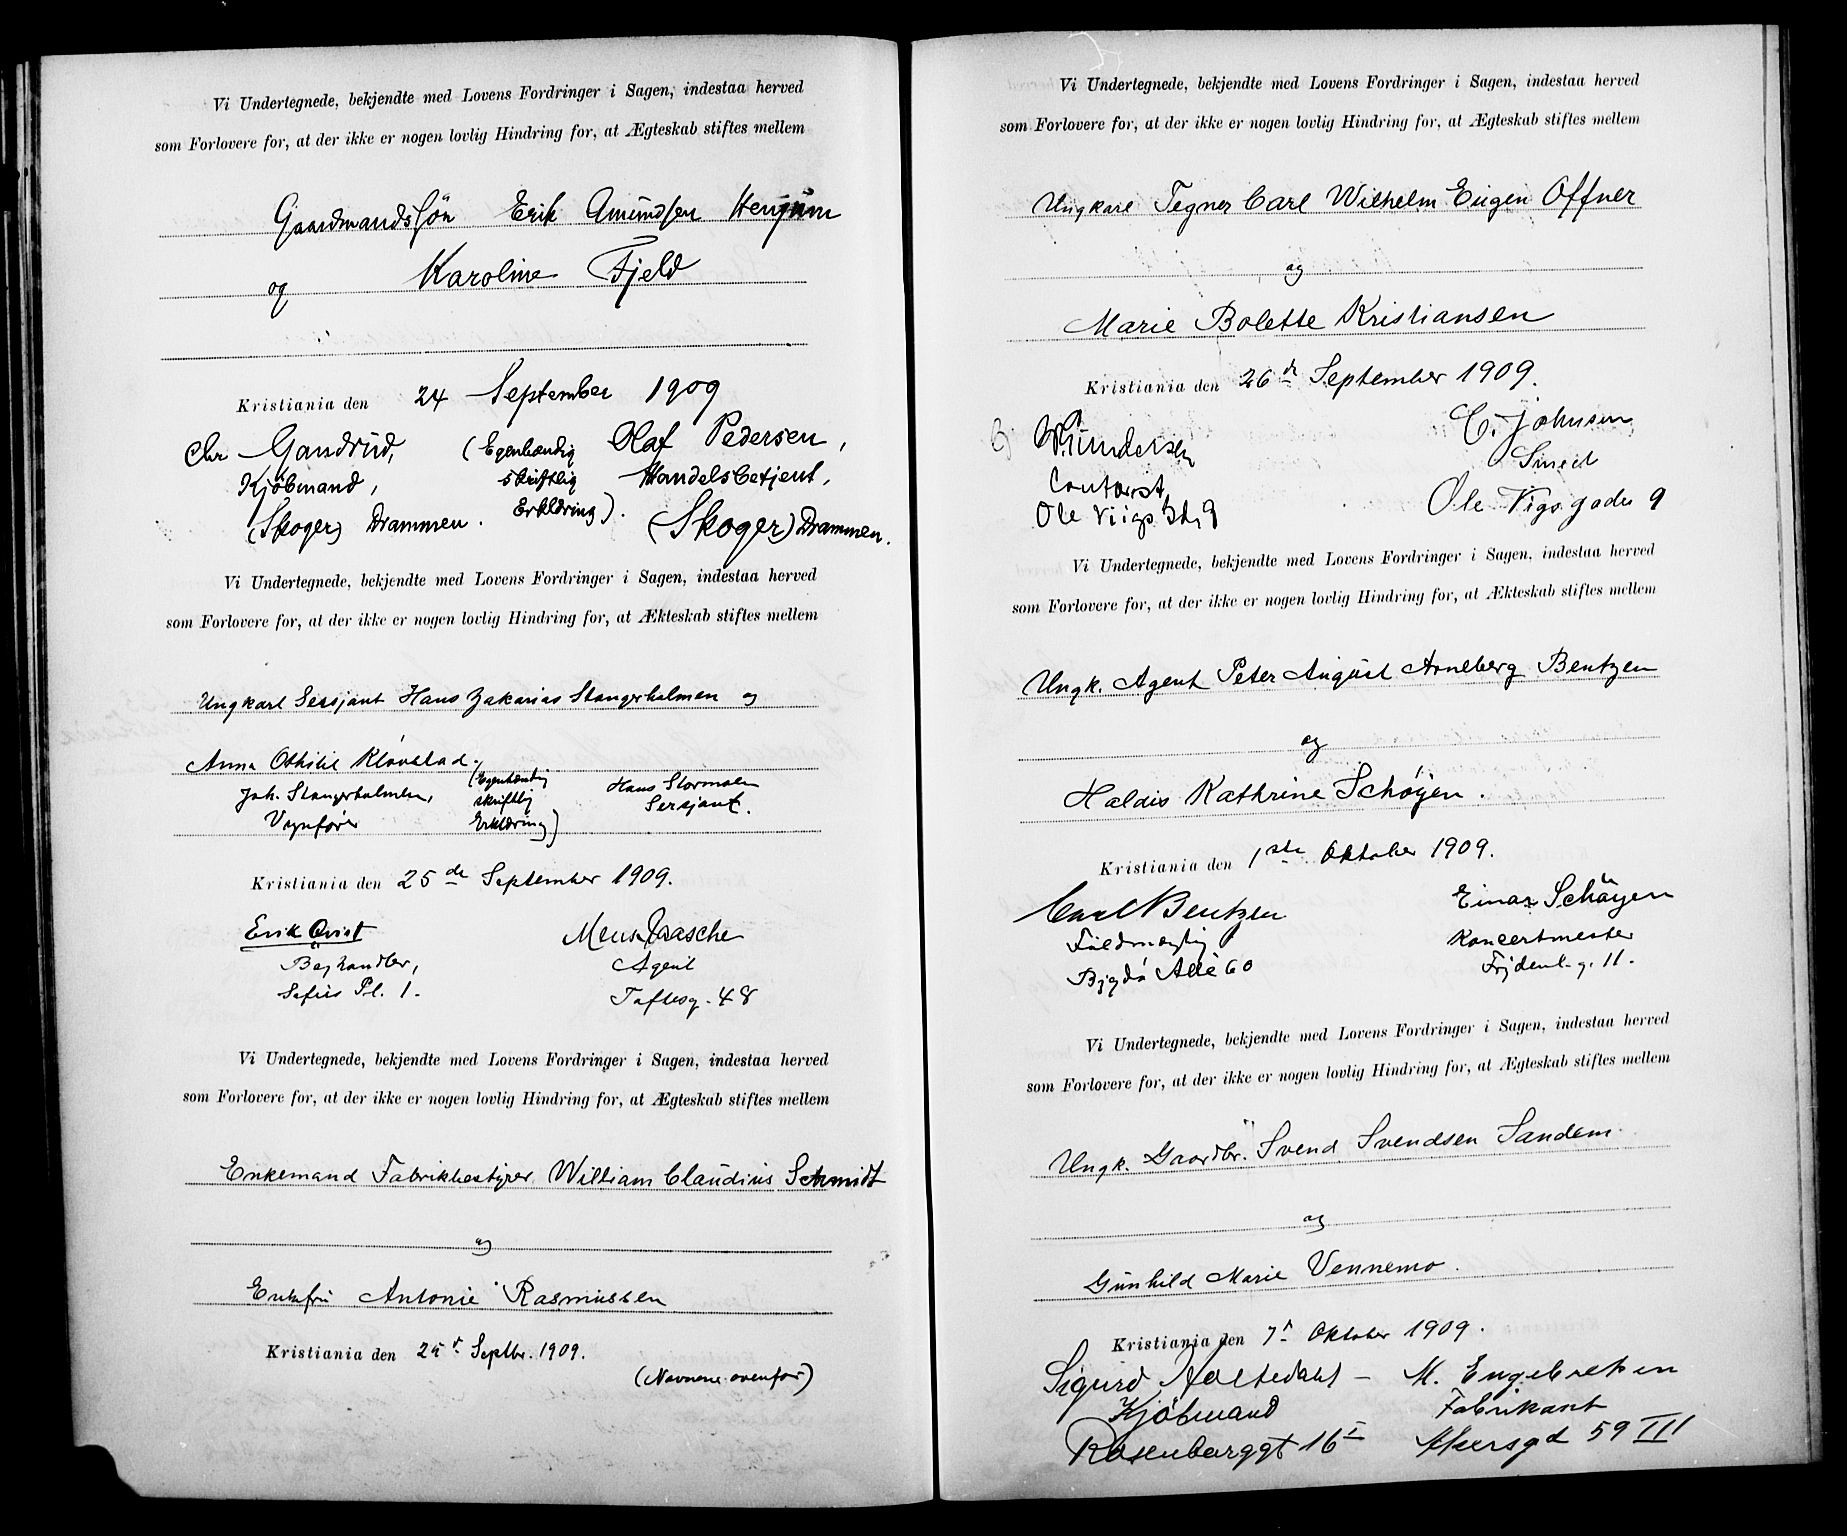 Vi Undertegnede, bekjendte med Lovens Fordringer i Sagen, indestaa herved
som Forlovere for, at der ikke er nogen lovlig Hindring for, at Ægteskab stiftes mellem
Gaardmandssön Erik Amundsen Henjum
og Karoline Fjeld
Kristiania den 24 September 1909
Chr Gandrud, (Egenhændig Olaf Pedersen,
Kjöbmand, skriftlig Handelsbetjent,
(Skoger) Drammen. Erklæring). (Skoger) Drammen.
Vi Undertegnede, bekjendte med Lovens Fordringer i Sagen, indestaa herved
som Forlovere for, at der ikke er nogen lovlig Hindring for, at Ækteskab stiftes mellem
Ungkarl Sersjant Hans Zakarias Stangerholmen og
Anna Othilie Kløvstad.
Joh. Stangerholmen, (Egenhændig Hans Stormoen
Vognfører skriftlig Sersjant.
Erklæring)
Kristiania den 25 de September 1909.
Erik Qvist
Boghandler, Agent
Pl. 1. Toftesg. 48
Vi Undertegnede, bekjendte med Lovens Fordringer i Sagen, indestaa herved
som Forlovere for, at der ikke er nogen lovlig Hindring for, at Ægteskab stiftes mellem
Enkemand Fabrikbestyrer William Claudius Schmidt
og
Enkefru Antonie Rasmussen
Kristiania den 25 d Septbr. 1909.
(Navnene ovenfor)
Vi Undertegnede, bekjendte med Lovens Fordringer i Sagen, indestaa herved
som Forlovere for, at der ikke er nogen lovlig Hindring for, at Ægteskab stiftes mellem
Ungkarl Tegner Carl Wilhelm Eugen Offner
og
Marie Bolette Kristiansen
Kristiania den 26 de September 1909.
C. Johnsen
Smed
Ole Vigs gade 9
Ole Viigs 9
Vi Undertegnede, bekjendte med Lovens Fordringer i Sagen, indestaa herved
som Forlovere for, at der ikke er nogen lovlig Hindring for, at Ækteskab stiftes mellem
Ungk. Agent Peter August Arneberg Bentzen
og
Haldis Kathrine Schøyen.
Kristiania den 1ste Oktober 1909.
Carl Bentzen Einar Schøyen
Fuldmægtig Koncertmester
Bygdö Allé 60 Frydenl. g. 11.
Vi Undertegnede, bekjendte med Lovens Fordringer i Sagen, indestaa herved
som Forlovere for, at der ikke er nogen lovlig Hindring for, at Ægteskab stiftes mellem
Ungk. Gaardbr. Svend Svendsen Sandem
og
Gunhild Marie Vennemo.
Kristiania den 7 d Oktober 1909.
Sigurd Holtedahl – M. Engebretsen
Kjöbmand Fabrikant
Rosenborggt 16 I Akersgd 59 III